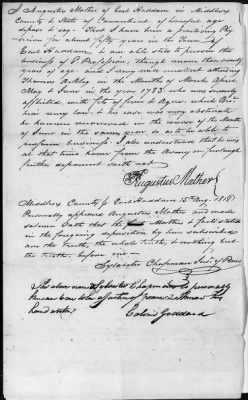 I Augustus Mather of East Haddam in Middlesex
County & State of Connecticut of lawful age
depose & say - That I have been a practising Phy-
sician for about fifty years in the Town of
East Haddam & am able still to pursue the
business of P. Profession, though more than seventy
years of age - and I very well recollect attending
Thomas in the Months of March April
May & June in the year 1783 who was severely
afflicted with fits of fever & Ague, which
him very low & his case was very obstinate
he however recovered in the course of the Month
of June in the same year so as to be able to
perform business. I also understood that he was
at that time home from the Army on furlough
further deponent saith not
Augustus Mather
Middlesex County ss East Haddam 15th Aug. 1818
Personally appeared Augustus Mather and made
solemn Oath that the Matter & facts stated
in the foregoing deposition by him subscribed
are the truth, the whole truth, & nothing but
the truth. before me -
Sylvester Chapman Jus. of Peace
The above named Sylvester Chapman is personally
known to me to be a Justice of peace & I know his
hand writing
Calvin Goddard